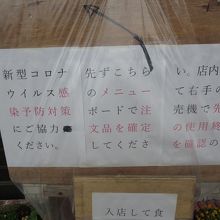 新型コロナ
ウイルス感
染予防対策
にご協力
ください。
先ずこちら
のメニュー
ボードで注
文品を確定
してくださ
い。店内
て右手の
売機で先
の使用終
を確認の
入店して食